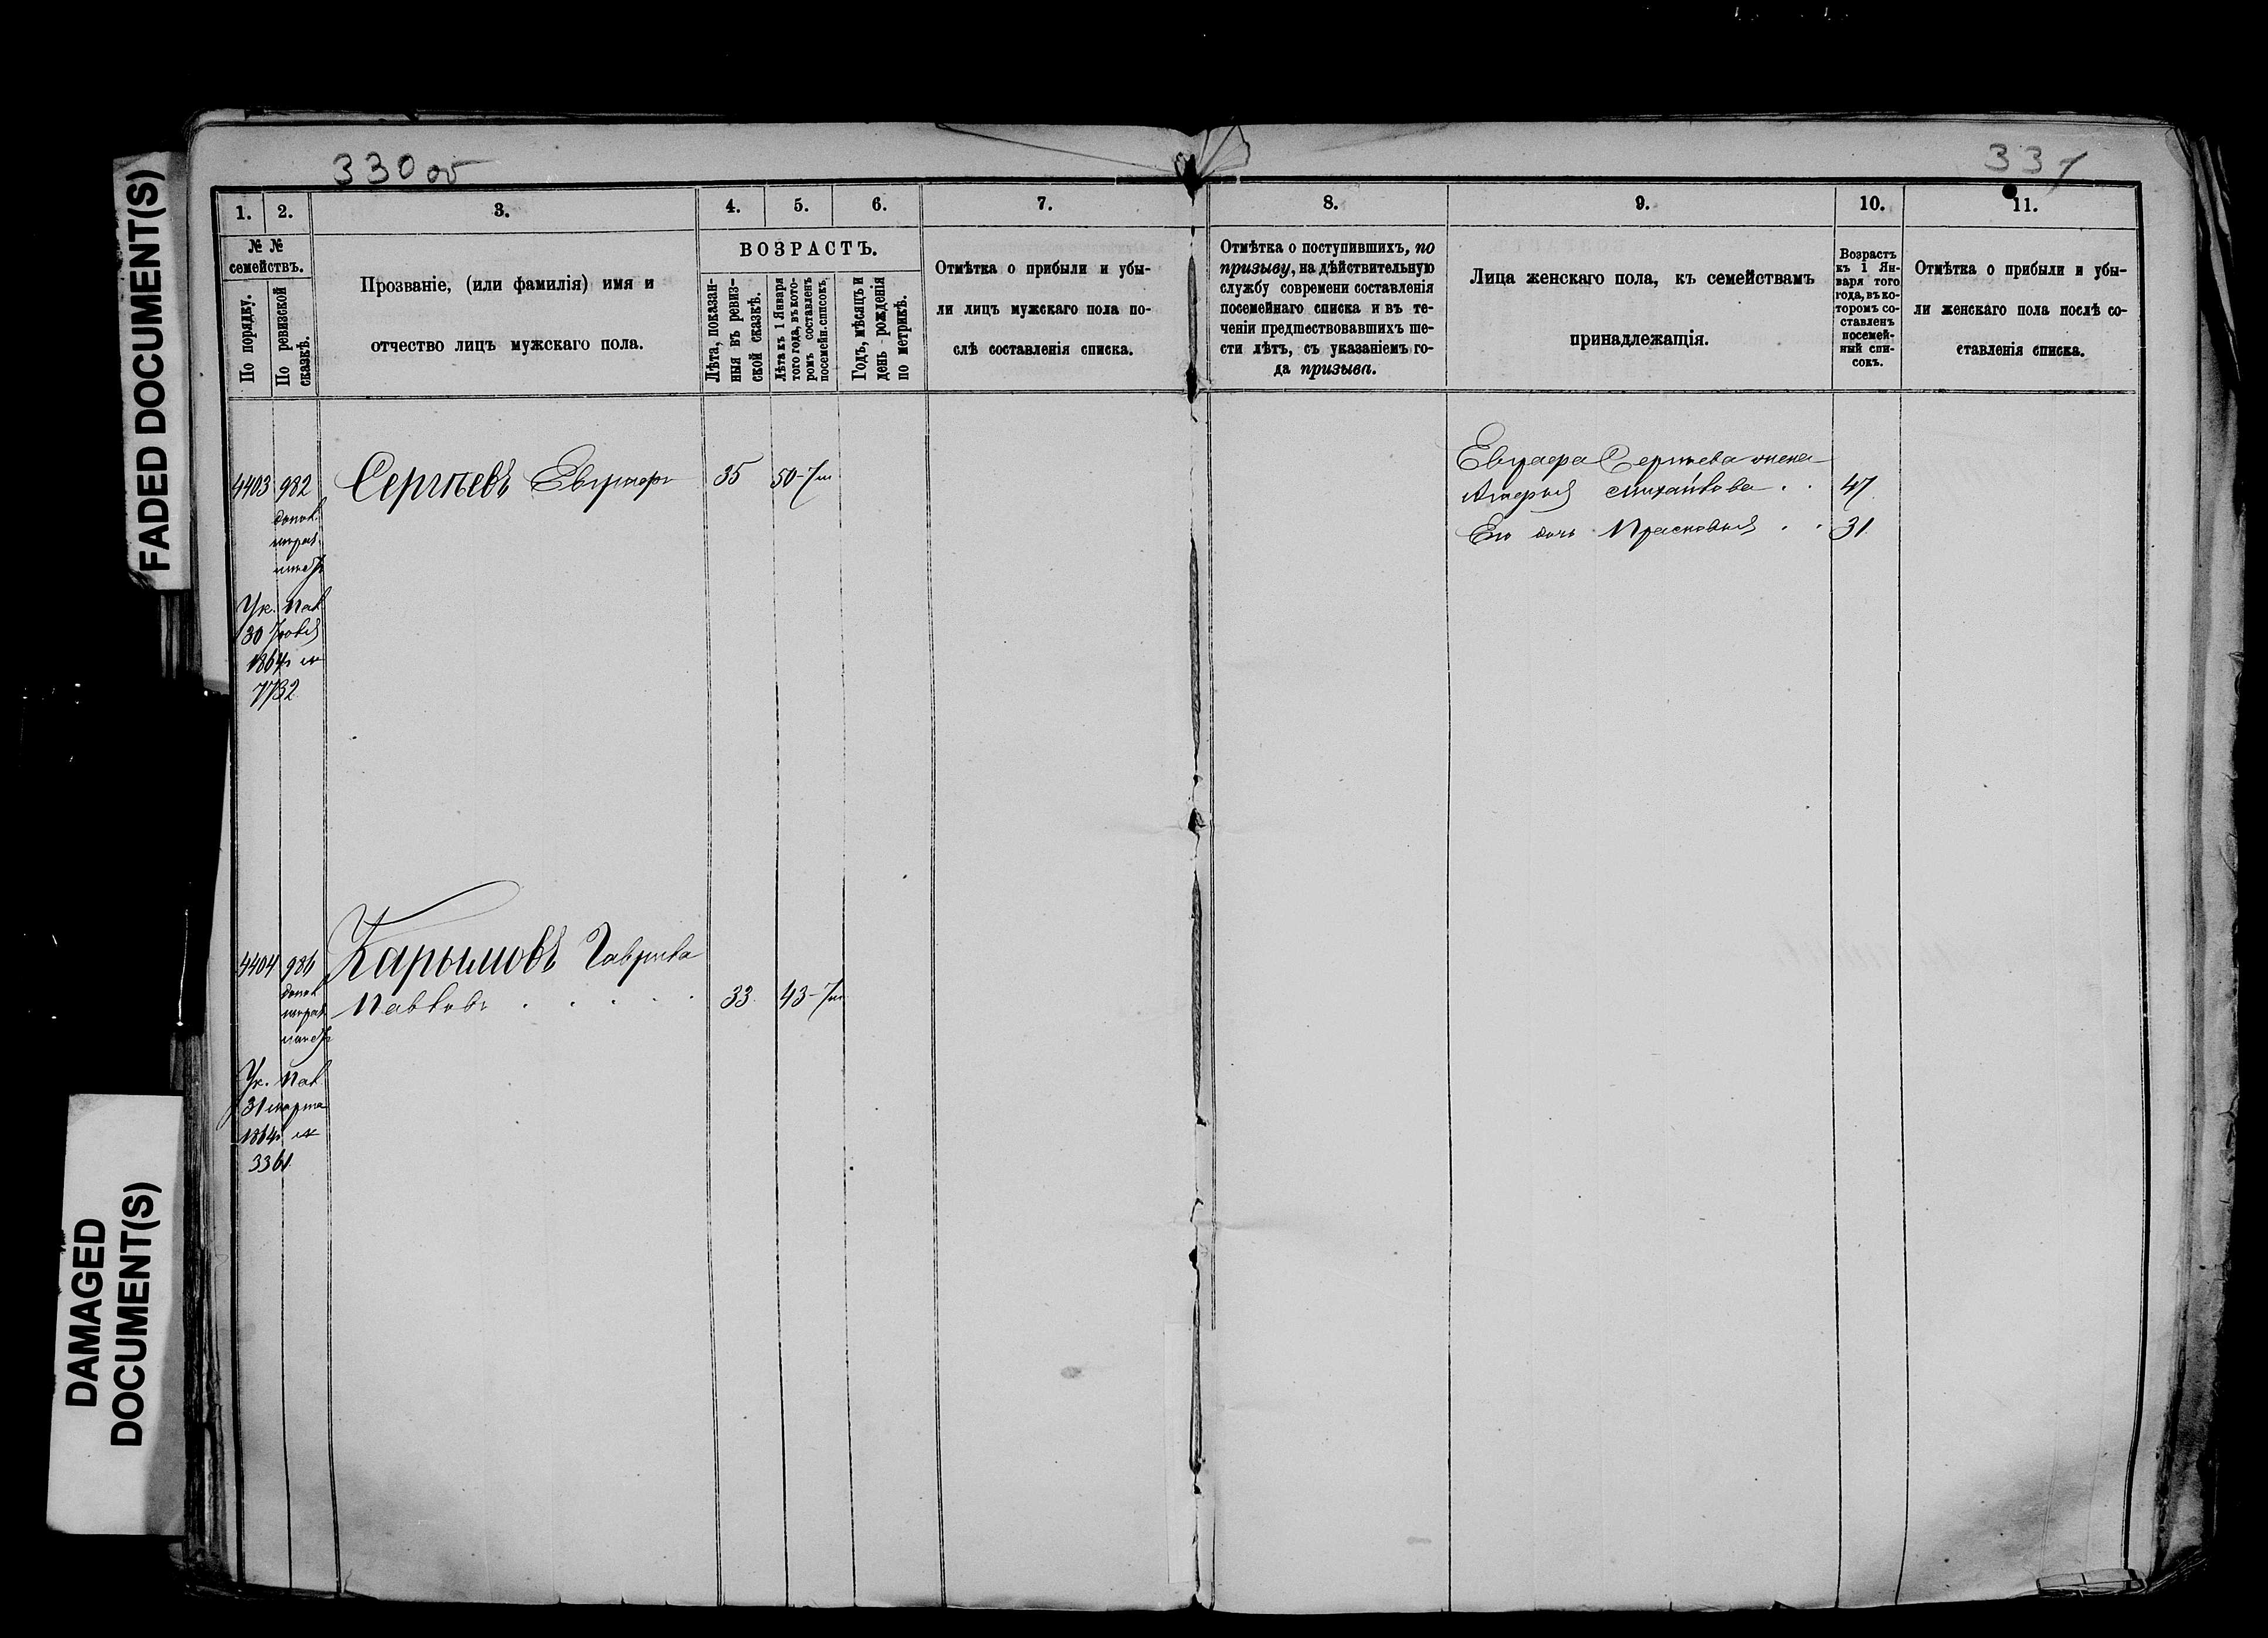 FADED DOCUMENT(S)
DAMAGED
DOCUMENT(S)
330 об
331
1.
2.
3.
4.
5.
6.
7.
8.
9.
10.
11.
№ №
семействъ.
По порядку.
По ревизской
сказкѣ.
Прозваніе, (или фамилія) имя и
отчество лицъ мужскаго пола.
ВОЗРАСТЪ.
Лѣта, показан-
ныя въ ревиз-
ской сказкѣ.
Лѣта къ 1 Января
того года, въ кото-
ромъ составленъ
посемейн. списокъ.
Годъ, мѣсяцъ и
день рожденія
по метрикѣ.
Отмѣтка о прибыли и убы-
ли лицъ мужскаго пола по-
слѣ составленія списка.
Отмѣтка о поступившихъ, по
призыву, на дѣйствительную
службу современи составленія
посемейнаго списка и въ те-
ченіи предшествовавшихъ ше-
сти лѣтъ, съ указаніемъ го-
да призыва.
Лица женскаго пола, къ семействамъ
принадлежащія.
Возрастъ
къ 1 Ян-
варя того
года, въ ко-
торомъ со-
ставленъ
посемей-
ный спи-
сокъ.
Отмѣтка о прибыли и убы-
ли женскаго пола послѣ со-
ставленія списка.
4403 982 Сергѣевъ Евграфъ 35 50
Ук. Пал
30
1864г №
7732
Евграфа Сергѣева жена
Михайлова . . 47
Его дочь Прасковья . . 31
4404 986 Карымовъ Гаврила
Павловъ . . . . . 33 43
Ук. Пал
31 марта
1864г №
3361